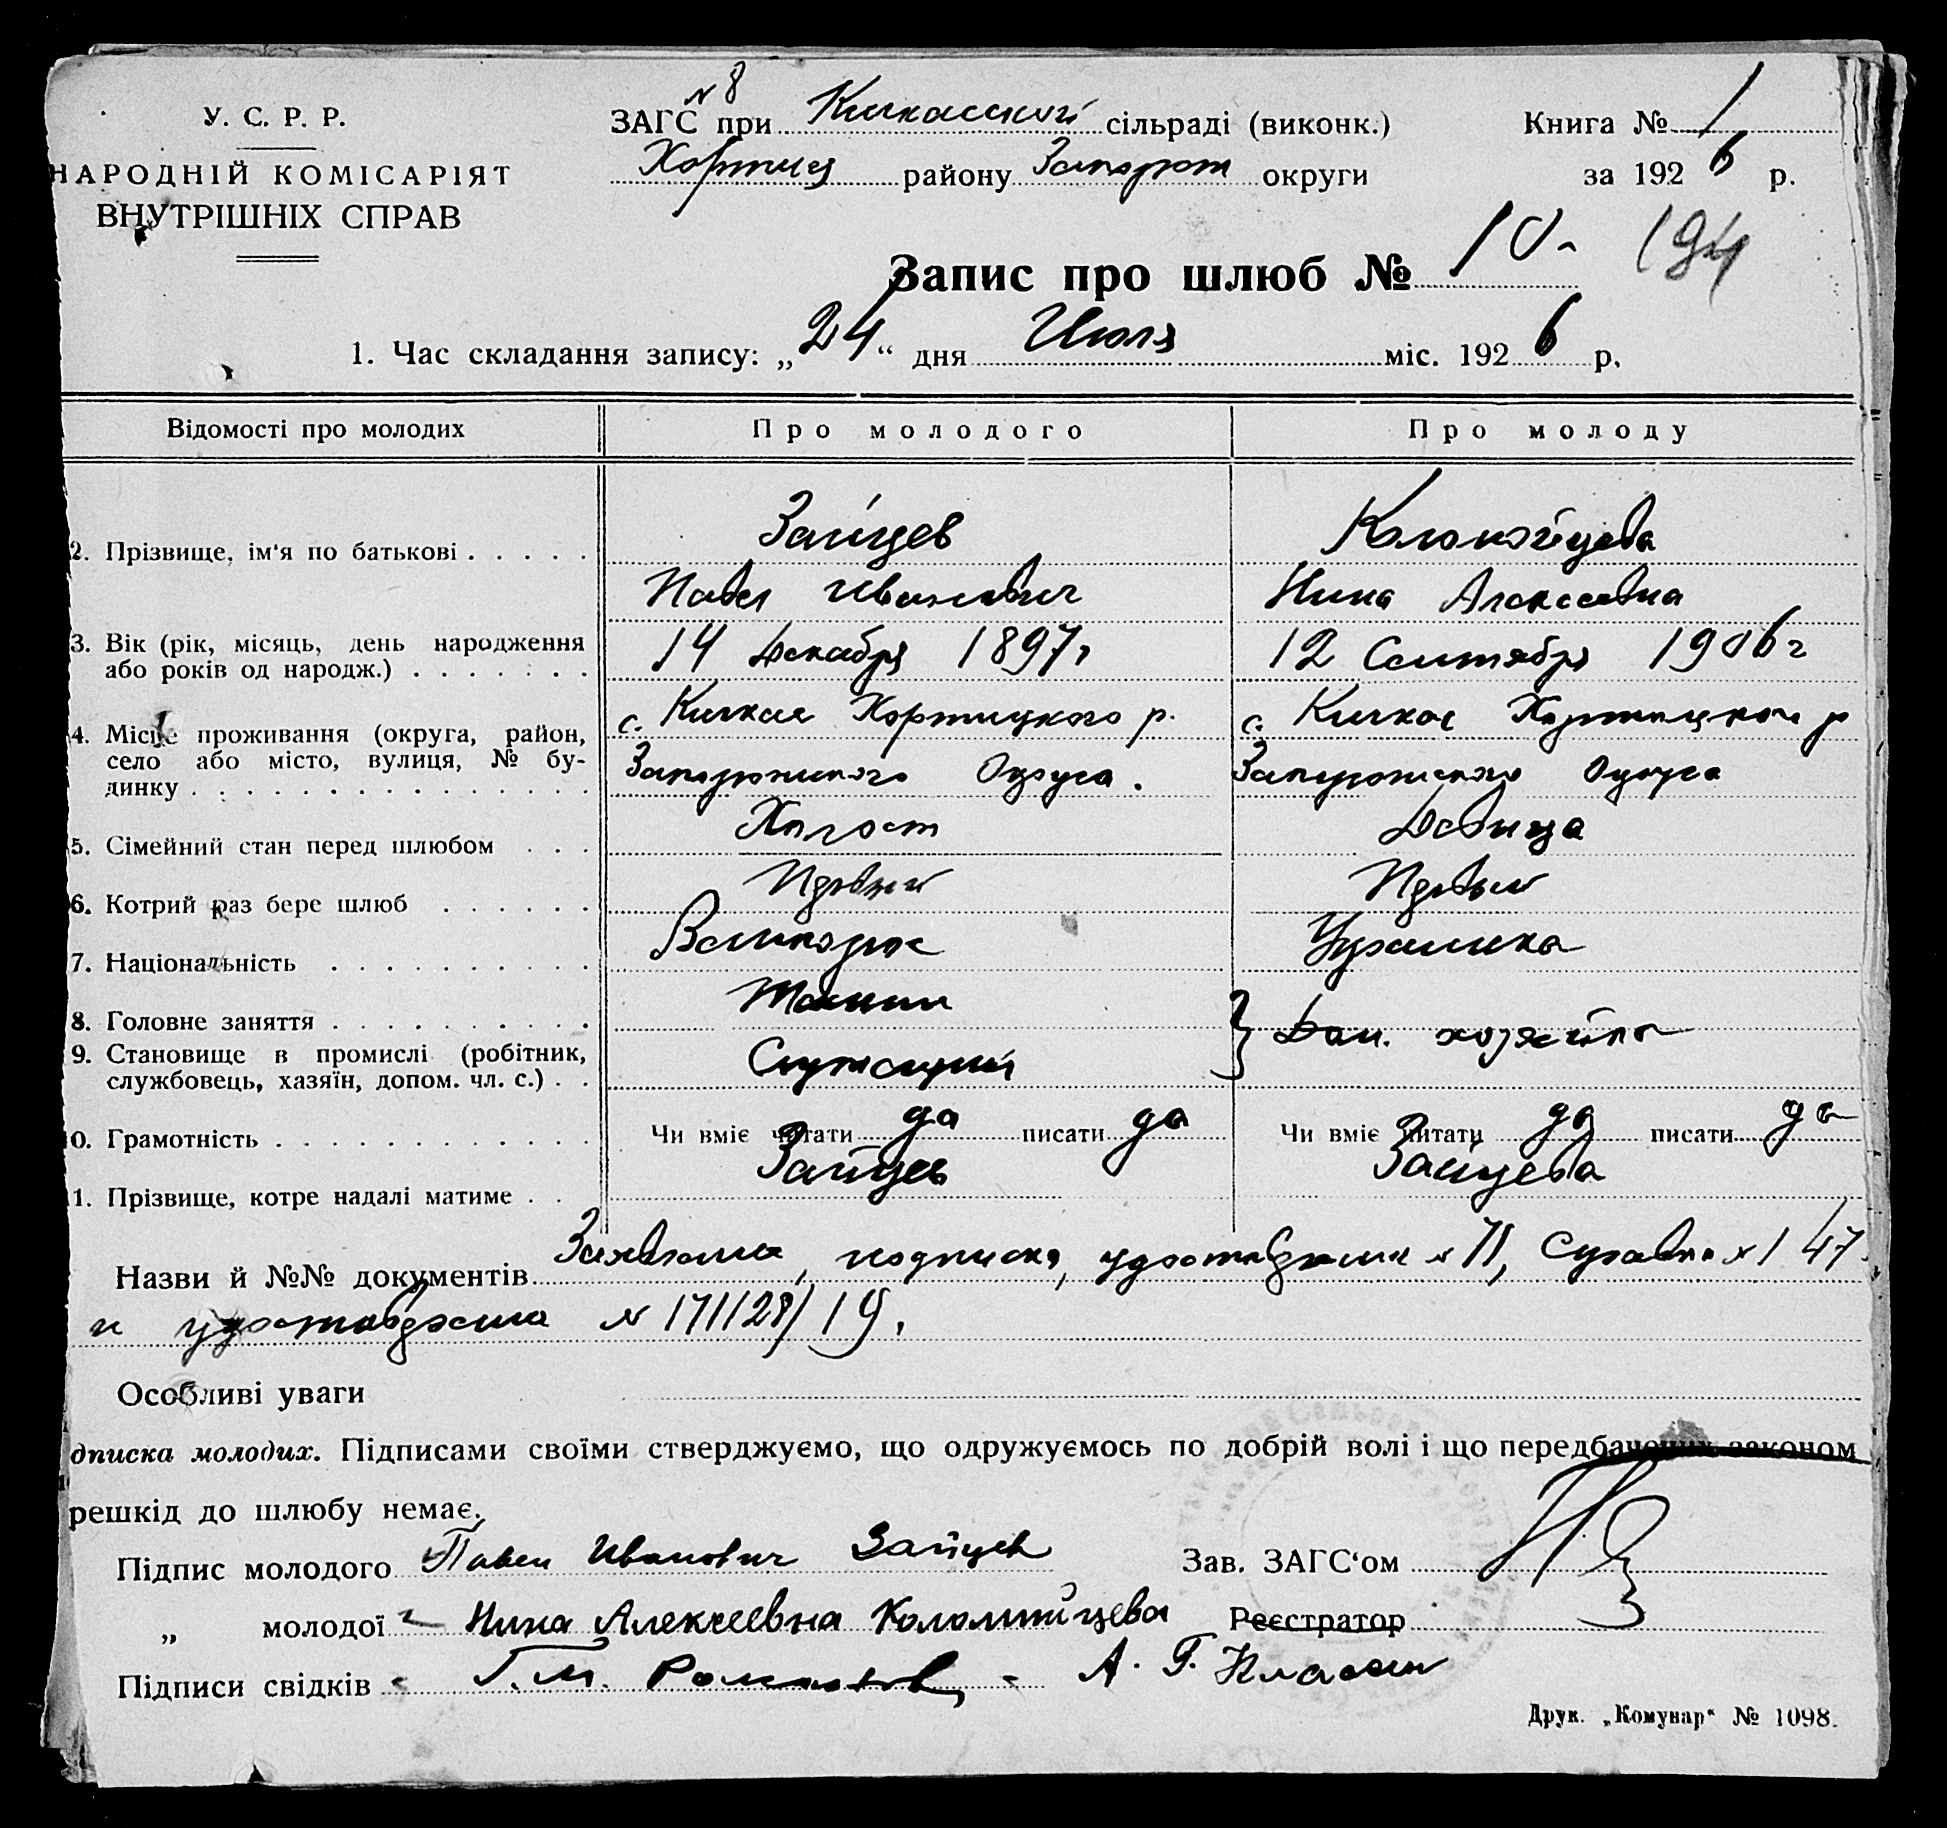 У. С. Р. Р.
НАРОДНІЙ КОМІСАРІЯТ
ВНУТРІШНІХ СПРАВ
N 8
ЗАГС при Кичкасский сільраді (виконк.)
Хортиц району Запорож округи
Книга № 1
за 192 6 р.
Запис про шлюб № 10 194
1. Час складання запису: „24“ дня Июля міс. 192 6 р.
Відомості про молодих Про молодого Про молоду
2. Прізвище, ім'я по батькові Зайцев Коломойцева
Павел Иванович Нина Алексеевна
3. Вік (рік, місяць, день народження або років од народж.) 14 Декабря 1897г 12 Сентября 1906 г
4. Місце проживання (округа, район, село або місто, вулиця, № будинку с. Кичкас Хортицкого р. с. Кичкас Хортицкого р
Запорожского Округа. Запорожского Округа
5. Сімейний стан перед шлюбом Холост Девица
6. Котрий раз бере шлюб Первый Первый
7. Національність Великорос Украинка
8. Головне заняття
9. Становище в промислі (робітник, службовець, хазяїн, допом. чл. с.) Служащий } Дом. хозяйка
0. Грамотність Чи вміє читати да писати да Чи вміє читати да писати да
1. Прізвище, котре надалі матиме Зайцев Зайцева
Назви й №№ документів Заявление, подписка, удостоверение N 71, Справка N 147
и удостоверение N 171128/19.
Особливі уваги
дписка молодих. Підписами своїми стверджуємо, що одружуємось по добрій волі і що передбачених законом
решкід до шлюбу немає.
Підпис молодого Павел Иванович Зайцев Зав. ЗАГС'ом
„ молодої Нина Алексеевна Коломийцева Реєстратор
Підписи свідків Г. М. А. Г.
Друк. „Комунар“ № 1098.